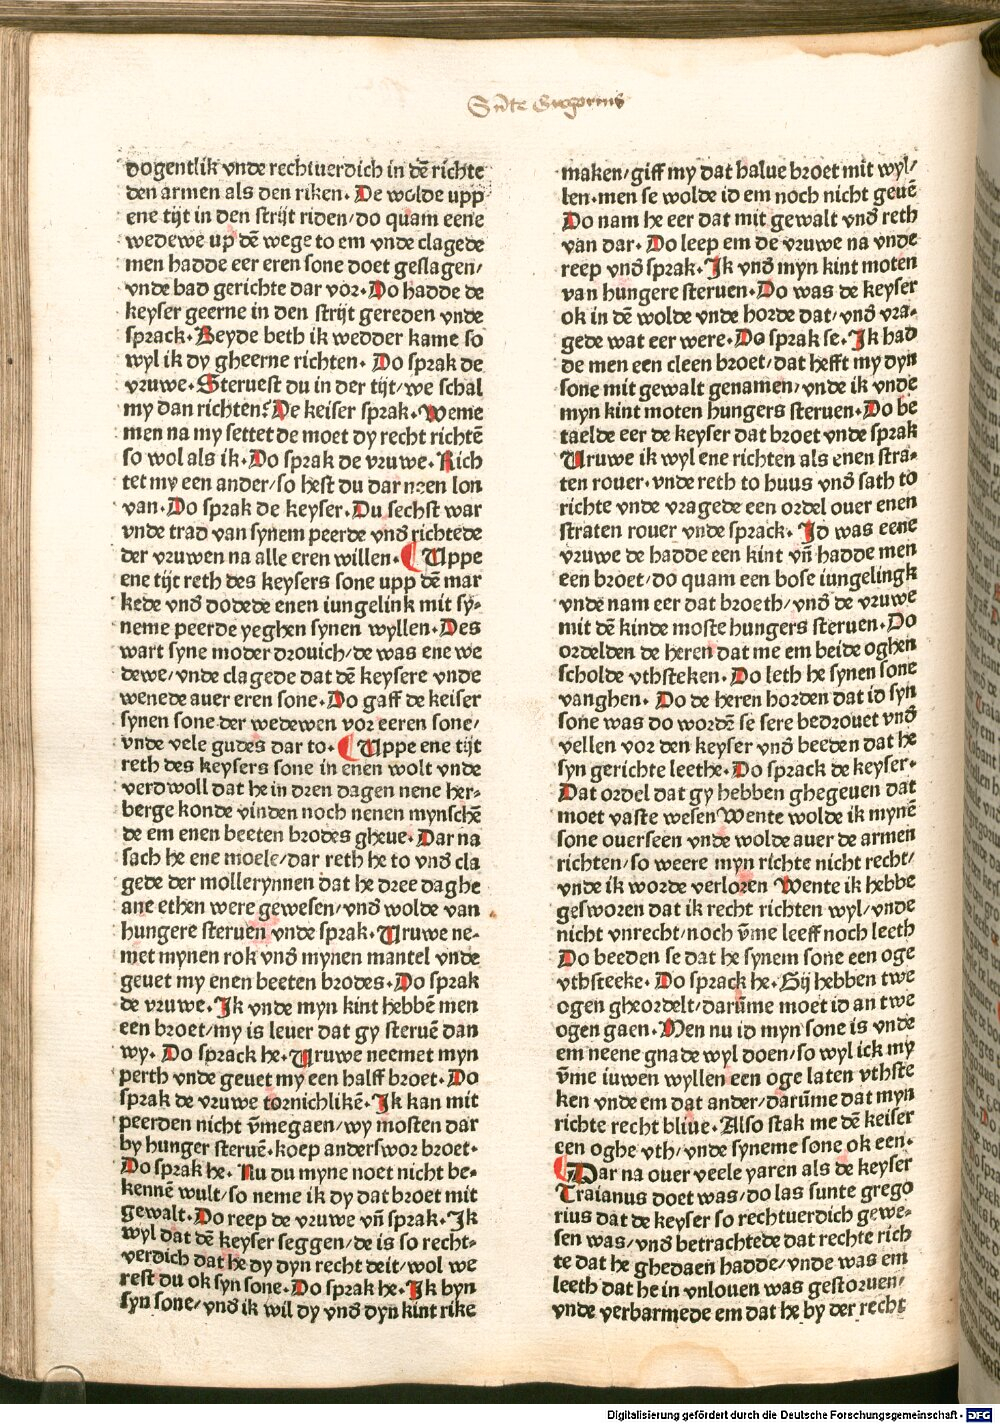 Sūte Gregorius
dogentlik vnde rechtuerdich in dē richte
den armen als den riken. De wolde upp
ene tijt in den strijt riden/do quam eene
wedewe up dē wege to em vnde clagede
men hadde eer eren sone doet geslagen/
vnde bad gerichte dar vor. Do hadde de
keyser geerne in den strijt gereden vnde
sprack. Beyde beth ik wedder kame so
wyl ik dy gheerne richten. Do sprak de
vruwe. Steruest du in der tijt/we schal
my dan richten? De keiser sprak. Weme
men na my settet de moet dy recht richtē
so wol als ik. Do sprak de vruwe. Rich
tet my een ander/so hest du dar neen lon
van. Do sprak de keyser. Du sechst war
vnde trad van synem peerde vnd richtede
der vruwen na alle eren willen. Uppe
ene tijt reth des keysers sone upp dē mar
kede vnd dodede enen iungelink mit sy-
neme peerde yeghen synen wyllen. Des
wart syne moder drouich/de was ene we
dewe/vnde clagede dat dē keysere vnde
wenede auer eren sone. Do gaff de keiser
synen sone der wedewen vor eeren sone/
vnde vele gudes dar to. Uppe ene tijt
reth des keysers sone in enen wolt vnde
verdwoll dat he in dren dagen nene her-
berge konde vinden noch nenen mynschē
de em enen beeten brodes gheue. Dar na
sach he ene moele/dar reth he to vnd cla
gede der mollerynnen dat he dree daghe
ane ethen were gewesen/vnd wolde van
hungere steruen vnde sprak. Uruwe ne-
met mynen rok vnd mynen mantel vnde
geuet my enen beeten brodes. Do sprak
de vruwe. Ik vnde myn kint hebbē men
een broet/my is leuer dat gy steruē dan
wy. Do sprack he. Uruwe neemet myn
perth vnde geuet my een halff broet. Do
sprak de vruwe tornichlikē. Ik kan mit
peerden nicht v̄megaen/wy mosten dar
by hunger steruē. koep anderswor broet.
Do sprak he. Nu du myne noet nicht be-
kennē wult/so neme ik dy dat broet mit
gewalt. Do reep de vruwe vn̄ sprak. Ik
wyl dat dē keyser seggen/de is so recht-
verdich dat he dy dyn recht deit/wol we
rest du ok syn sone. Do sprak he. Ik byn
syn sone/vnd ik wil dy vnd dyn kint rike
maken/giff my dat halue broet mit wyl/
len. men se wolde id em noch nicht geuē
Do nam he eer dat mit gewalt vnd reth
van dar. Do leep em de vruwe na vnde
reep vnd sprak. Ik vnd myn kint moten
van hungere steruen. Do was de keyser
ok in dē wolde vnde horde dat/vnd vra-
gede wat eer were. Do sprak se. Ik had
de men een cleen broet/dat hefft my dyn
sone mit gewalt genamen/vnde ik vnde
myn kint moten hungers steruen. Do be
taelde eer de keyser dat broet vnde sprak
Uruwe ik wyl ene richten als enen stra-
ten rouer. vnde reth to huus vnd sath to
richte vnde vragede een ordel ouer enen
straten rouer vnde sprack. Id was eene
vruwe de hadde een kint vn̄ hadde men
een broet/do quam een bose iungelingk
vnde nam eer dat broeth/vnd de vruwe
mit dē kinde moste hungers steruen. Do
ordelden de heren dat me em beide oghen
scholde vthsteken. Do leth he synen sone
vanghen. Do de heren horden dat id syn
sone was do wordē se sere bedrouet vnd
vellen vor den keyser vnd beeden dat he
syn gerichte leethe. Do sprack de keyser.
Dat ordel dat gy hebben ghegeuen dat
moet vaste wesen Wente wolde ik mynē
sone ouerseen vnde wolde auer de armen
richten/so weere myn richte nicht recht/
vnde ik worde verloren Wente ik hebbe
gesworen dat ik recht richten wyl/vnde
nicht vnrecht/noch v̄me leeff noch leeth
Do beeden se dat he synem sone een oge
vthsteeke. Do sprack he. Gij hebben twe
ogen gheordelt/darūme moet id an twe
ogen gaen. Men nu id myn sone is vnde
em neene gnade wyl doen/so wyl ick my
v̄me iuwen wyllen een oge laten vthste
ken vnde em dat ander/darūme dat myn
richte recht bliue. Also stak me dē keiser
een oghe vth/vnde syneme sone ok een.
Dar na ouer veele yaren als de keyser
Traianus doet was/do las sunte grego
rius dat de keyser so rechtuerdich gewe-
sen was/vnd betrachtede dat rechte rich
te dat he ghedaen hadde/vnde was em
leeth dat he in vnlouen was gestoruen/
vnde verbarmede em dat he by der recht
Digitalisierung gefördert durch die Deutsche Forschungsgemeinschaft - DFG